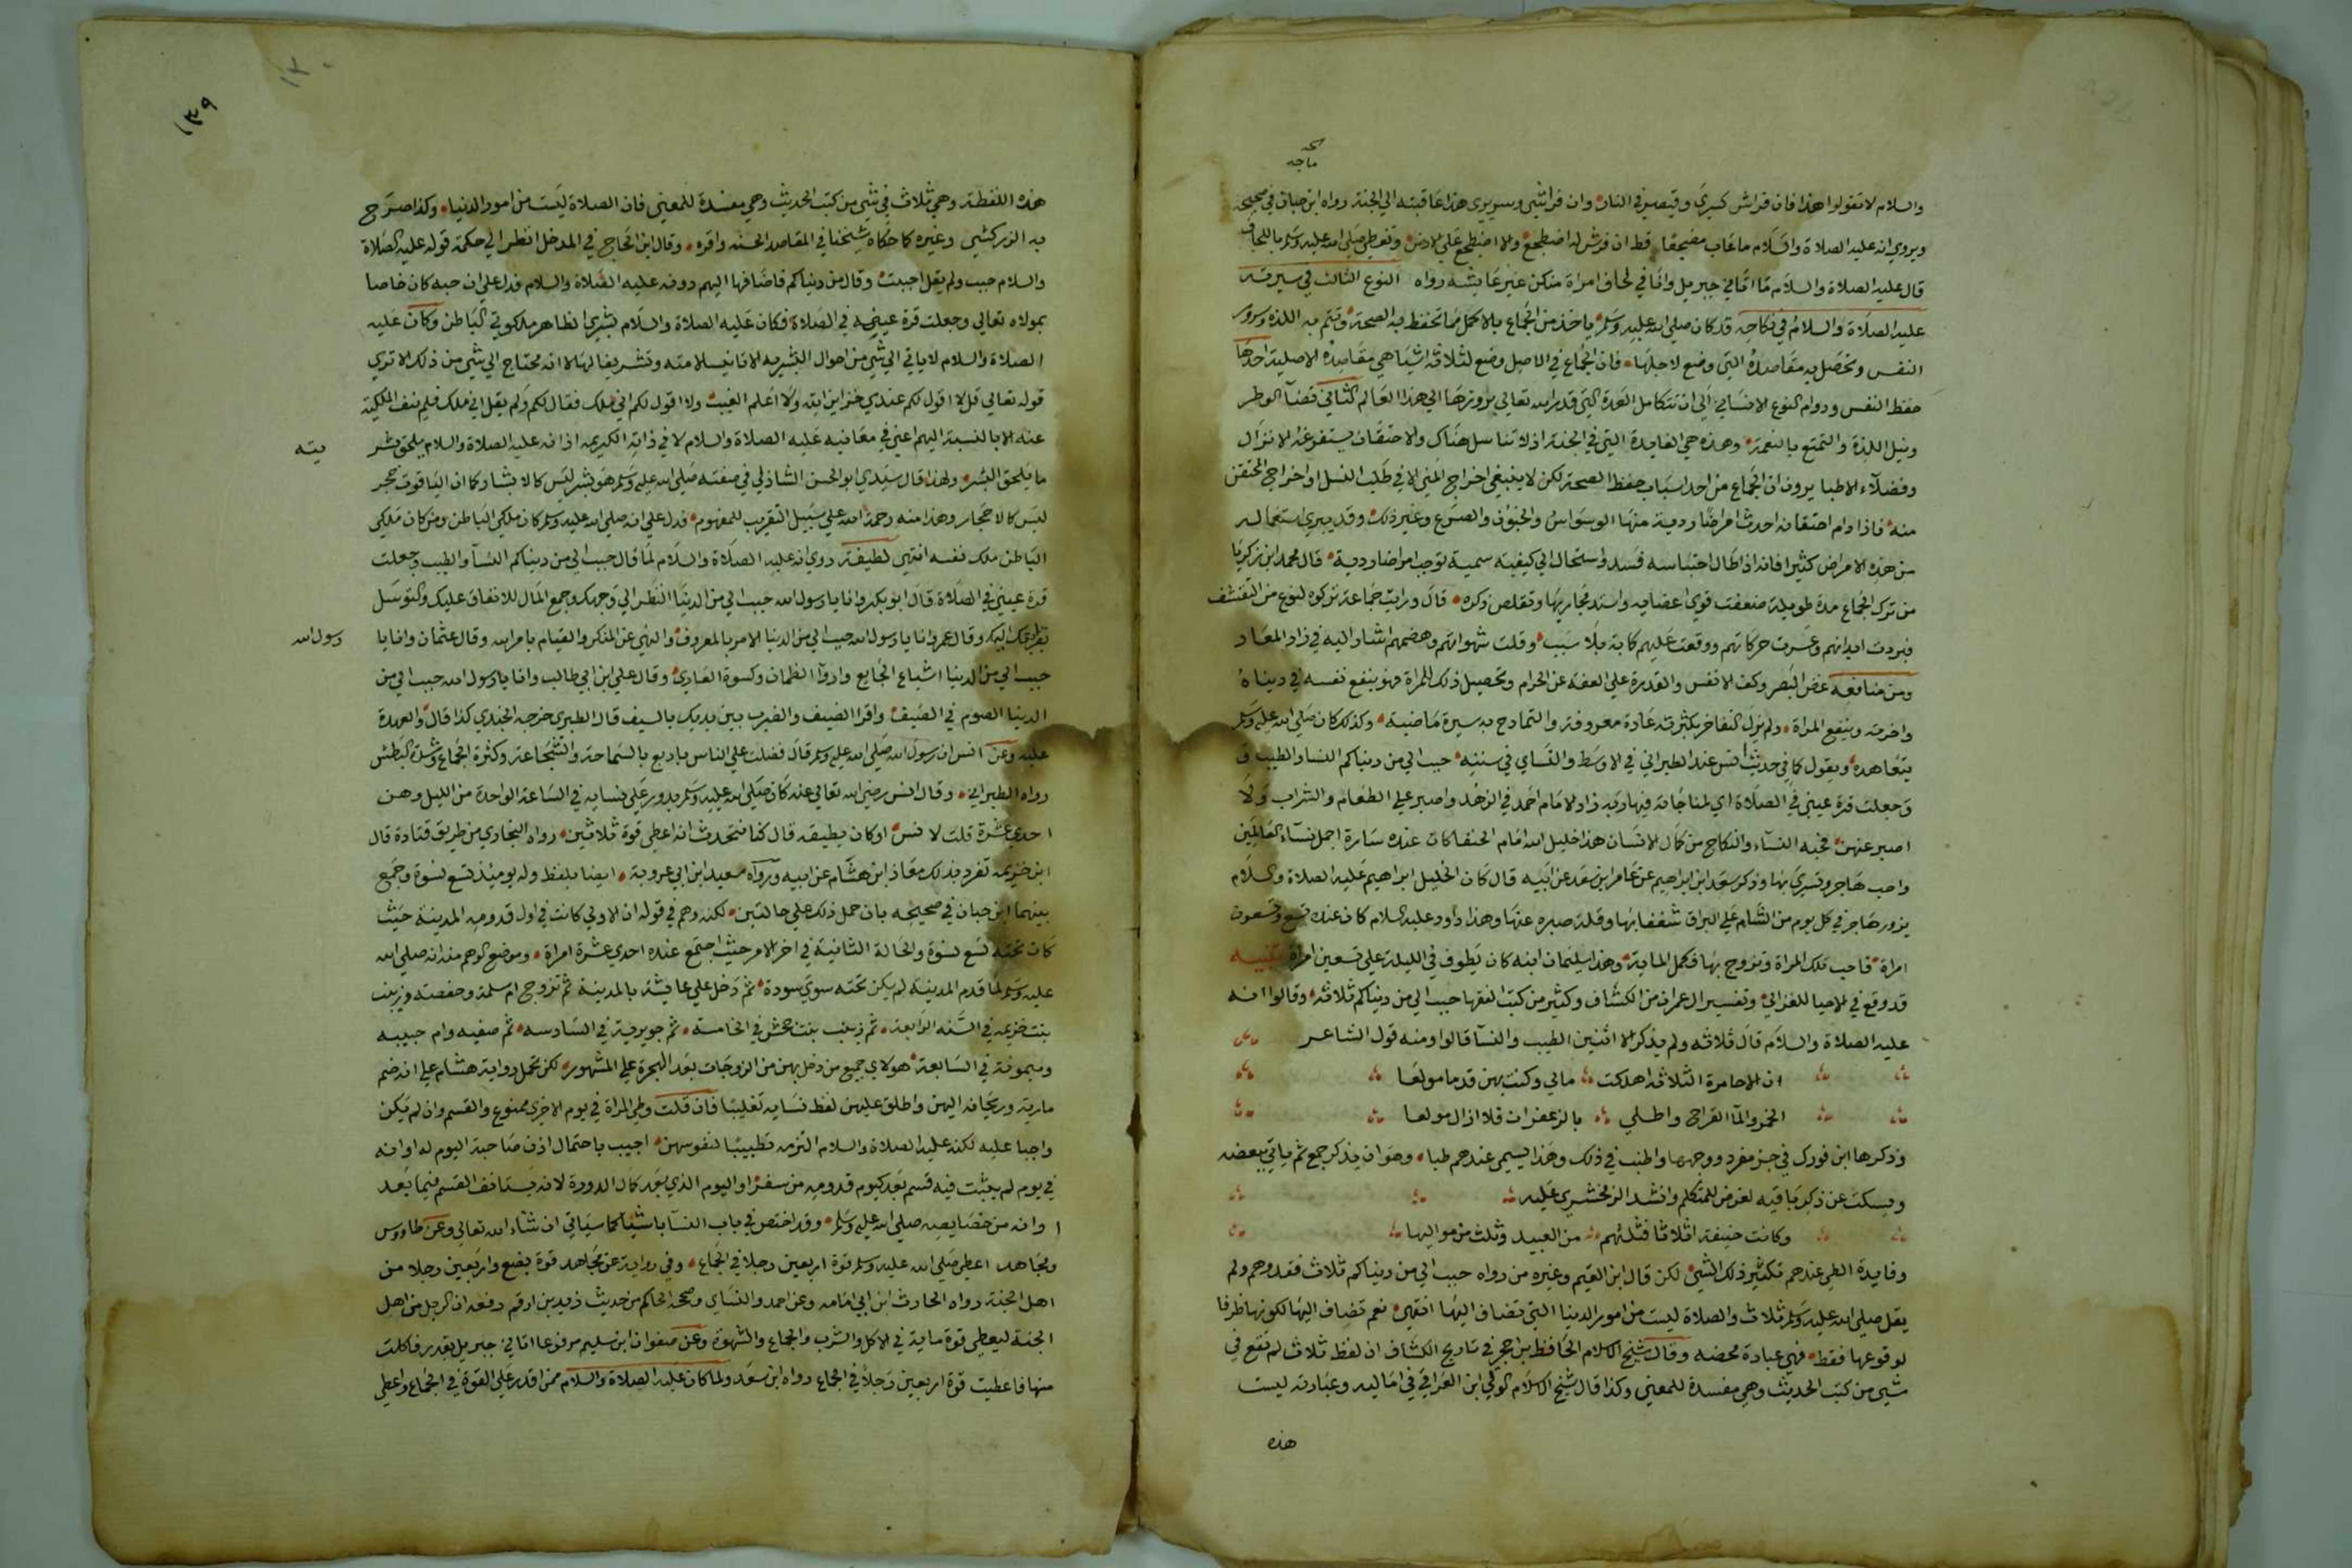 ماجه
والسلام لا تقولوا هذا فان فراش كسري وقيصر في النار وان فراشي وسريري هذا عاقبته الي الجنة رواه ابن حبان في صحيحه
ويروي انه عليه الصلاة والسلام ما عاب مضجعا قط ان فرش له اضطجع والا اضطجع علي الارض وتغطي صلي الله عليه وسلم باللحاف
قال عليه الصلاة والسلام ما اتاني جبريل وانا في لحاف امراة منكن غير عايشه رواه النوع الثالث في سيرته
عليه الصلاة والسلام في نكاحه قد كان صلي الله عليه وسلم ياخذ من الجماع بالاكمل مما تحفظ به الصحة وتتم به اللذه وسرور
النفس وتحصل به مقاصده التي وضع لاجلها فان الجماع في الاصل وضع لثلاثة اشيا هي مقاصده الاصلية احدها
حفظ النفس ودوام النوع الانساني الي ان تتكامل العدة التي قدر الله تعالي بروزها الي هذا العالم الثاني قضآ الوطر
ونيل اللذة والتمتع بالنعمة وهذه هي الفايدة التي في الجنة اذ لا تناسل هناك ولا احتقان يستفرغه الانزال
وفضلآء الاطبا يرون ان الجماع من احد اسباب حفظ الصحة لكن لا ينبغي اخراج المني الا في طلب النسل او اخراج المحتقن
منه فاذا دام احتقانه احدث امراضا ردية منها الوسواس والجنون والصرع وغير ذلك وقد يبري استعماله
من هذه الامراض كثيرا فانه اذا طال احتباسه فسد واستحال الي كيفية سمية توجب امراضا ردية قال محمد ابن زكريا
من ترك الجماع مدة طويلة ضعفت قوي اعضايه واستد مجاريها وتقلص ذكره قال ورايت جماعة تركوه لنوع من التقشف
فبردت ابدانهم وعسرت حركاتهم ووقعت عليهم كابة بلا سبب وقلت شهواتهم وهضمهم اشار اليه في زاد المعاد
ومن منافعه غض البصر وكف الانفس والقدرة علي العفه عن الحرام وتحصيل ذلك للمراة فهو ينفع نفسه في دنياه
واخرته وينفع المراة ولم يزل التفاخر بكثرته عادة معروفة والتمادح به سيرة ماضية وكذلك كان صلي الله عليه وسلم
يتعاهده ويقول كما في حديث انس عند الطبراني في الاوسط والنساي في سننه حبب الي من دنياكم النسا والطيب و
وجعلت قرة عيني في الصلاة اي لمناجاته فيها ربه زاد الامام احمد في الزهد واصبر علي الطعام والشراب ولا
اصبر عنهن محبه النسآء والنكاح من كمال الانسان هذا خليل الله امام الحنفا كان عنده سارة اجمل نسآء العالمين
واحب هاجر وتسري بها وذكر سعد ابن ابراهيم عن عامر ابن سعد عن ابيه قال كان الخليل ابراهيم عليه الصلاة والسلام
يزور هاجر في كل يوم من الشام علي البراق شغفا بها وقلة صبره عنها وهذا داود عليه السلام كان عنده تسع وتسعون
امراة فاحب تلك المراة وتزوج بها فكمل الماية وهذا سليمان ابنه كان يطوف في الليلة علي تسعين امراة تنبيه
قد وقع في الاحيا للغزالي وتفسير ال عمران من الكشاف وكثير من كتب الفقها حبب الي من دنياكم ثلاثه وقالوا انه
عليه الصلاة والسلام قال ثلاثه ولم يذكر الا اثنين الطيب والنسآ قالوا ومنه قول الشاعر
ان الاحامرة الثلاثه اهلكت مالي وكنت بهن قدما مولعا
الخمر والمآ القراح واطلي بالزعفران فلا ازال مولعا
وذكرها ابن فورك في جز مفرد ووجهها واطنب في ذلك وهذا يسمي عندهم طبا وهو ان يذكر جمع ثم ياتي ببعضه
ويسكت عن ذكر باقيه لغرض للمتكلم وانشد الزمخشري عليه
وكانت حنيفة اثلاثا فثلثهم من العبيد وثلث من مواليها
وفايدة الطي عندهم تكثير ذلك الشي لكن قال ابن القيم وغيره من رواه حبب الي من دنياكم ثلاث فقد وهم ولم
يقل صلي الله عليه وسلم ثلاث والصلاة ليست من امور الدنيا التي تضاف اليها انتهي نعم تضاف اليها لكونها ظرفا
لوقوعها فقط فهي عبادة محضه وقال شيخ الاسلام الحافظ بن حجر في تاريج الكشاف ان لفظ ثلاث لم تقع في
شي من كتب الحديث وهي مفسدة للمعني وكذا قال شيخ الاسلام الولي ابن العراقي في اماليه وعبارته ليست
هذه
١٣٩
هذه اللفظة وهي ثلاث في شي من كتب الحديث وهي مفسدة للمعني فان الصلاة ليست من امور الدنيا وكذا صرح
به الزركشي وغيره كما حكاه شيخنا في المقاصد الحسنه واقره وقال ابن الحاج في المدخل انظر الي حكمة قوله عليه الصلاة
والسلام حبب ولم يقل احببت وقال من دنياكم فاضافها اليهم دونه عليه الصلاة والسلام فدل علي ان حبه كان خاصا
بمولاه تعالي وجعلت قرة عيني في الصلاة فكان عليه الصلاة والسلام بشري الظاهر ملكوتي الباطن وكان عليه
الصلاة والسلام لا ياتي الي شي من احوال البشريه الا تانيسا لامته وتشريعا لها لا انه محتاج الي شي من ذلك الا تري
قوله تعالي قل لا اقول لكم عندي خزاين الله ولا اعلم الغيب ولا اقول لكم اني ملك فقال لكم ولم يقل اني ملك فلم ينف الملكية
عنه الا بالنسبة اليهم اعني في معانيه عليه الصلاة والسلام لا في ذاته الكريمه اذ انه عليه الصلاة والسلام يلحق بشر
يته
ما يلحق البشر ولهذا قال سيدي ابو الحسن الشاذلي في صفته صلي الله عليه وسلم هو بشر ليس كالابشار كما ان الياقوت حجر
ليس كالاحجار وهذا منه رحمه الله علي سبيل التقريب للمفهوم فدل علي انه صلي الله عليه وسلم كان ملكي الباطن ومن كان ملكي
الباطن ملك نفسه انتهي لطيفة روي انه عليه الصلاة والسلام لما قال حبب الي من دنياكم النسآ والطيب وجعلت
قرة عيني في الصلاة قال ابو بكر وانا يا رسول الله حبب الي من الدنيا النظر الي وجهك وجمع المال للانفاق عليك والتوسل
بقرابتك اليك وقال عمر وانا يا رسول الله حبب الي من الدنيا الامر بالمعروف والنهي عن المنكر والقيام بامر الله وقال عثمان وانا يا
رسول الله
حبب الي من الدنيا اشباع الجايع واروآ الظمان وكسوة العاري وقال علي ابن ابي طالب وانا يا رسول الله حبب الي من
الدنيا الصوم في الصيف واقرا الضيف والضرب بين يديك بالسيف قال الطبري خرجه الجندي كذا قال والعهدة
عليه وعن انس ان رسول الله صلي الله عليه وسلم قال فضلت علي الناس باربع بالسماحة والشجاعة وكثرة الجماع وشدة البطش
رواه الطبراني وقال انس رضي الله تعالي عنه كان صلي الله عليه وسلم يدور علي نسايه في الساعة الواحدة من الليل وهن
احدي عشرة قلت لانس اوكان يطيقه قال كنا نتحدث انه اعطي قوة ثلاثين رواه البخاري من طريق قتادة قال
ابن خزيمه تفرد بذلك معاذ ابن هشام عن ابيه ورواه سعيد ابن ابي عروبة ايضا بلفظ وله يوميذ تسع نسوة وجمع
بينهما ابن حبان في صحيحه بان حمل ذلك علي حالتين لكنه وهم في قوله ان الاولي كانت في اول قدومه المدينة حيث
كان تحته تسع نسوة والحالة الثانية في اخر الامر حيث اجتمع عنده احدي عشرة امراة وموضع الوهم منه انه صلي الله
عليه وسلم لما قدم المدينة لم يكن تحته سوي سودة ثم دخل علي عايشة بالمدينة ثم تزوج ام سلمة وحفصه وزينب
بنت خزيمه في السنة الرابعة ثم زينب بنت جحش في الخامسة ثم جويرية في السادسه ثم صفيه وام حبيبه
وميمونة في السابعة هولاي جميع من دخل بهن من الزوجات بعد الهجرة علي المشهور لكن تحمل رواية هشام علي انه ضم
مارية وريحانه اليهن واطلق عليهن لفظ نسايه تغليبا فان قلت وطي المراة في يوم الاخري ممنوع والقسم وان لم يكن
واجبا عليه لكنه عليه الصلاة والسلام التزمه تطييبا لنفوسهن اجيب باحتمال اذن صاحبة اليوم له او انه
في يوم لم يثبت فيه قسم بعد كيوم قدومه من سفر او اليوم الذي بعد كمال الدورة لانه يستانف القسم فيما بعد
او انه من خصايصه صلي الله عليه وسلم وقد اختص في باب النسآ باشيا كما سياتي ان شآء الله تعالي وعن طاووس
ومجاهد اعطي صلي الله عليه وسلم قوة اربعين رجلا في الجماع وفي رواية عن مجاهد قوة بضع واربعين رجلا من
اهل الجنة رواه الحارث ابن ابي اسامه وعن احمد والنساي وصححه الحاكم من حديث زيد بن ارقم رفعه ان الرجل من اهل
الجنة ليعطي قوة ماية في الاكل والشرب والجماع والشهوة وعن صفوان ابن سليم مرفوعا اتاني جبريل بقدر فاكلت
منها فاعطيت قوة اربعين رجلا في الجماع رواه ابن سعد ولما كان عليه الصلاة والسلام ممن اقدر علي القوة في الجماع واعطي